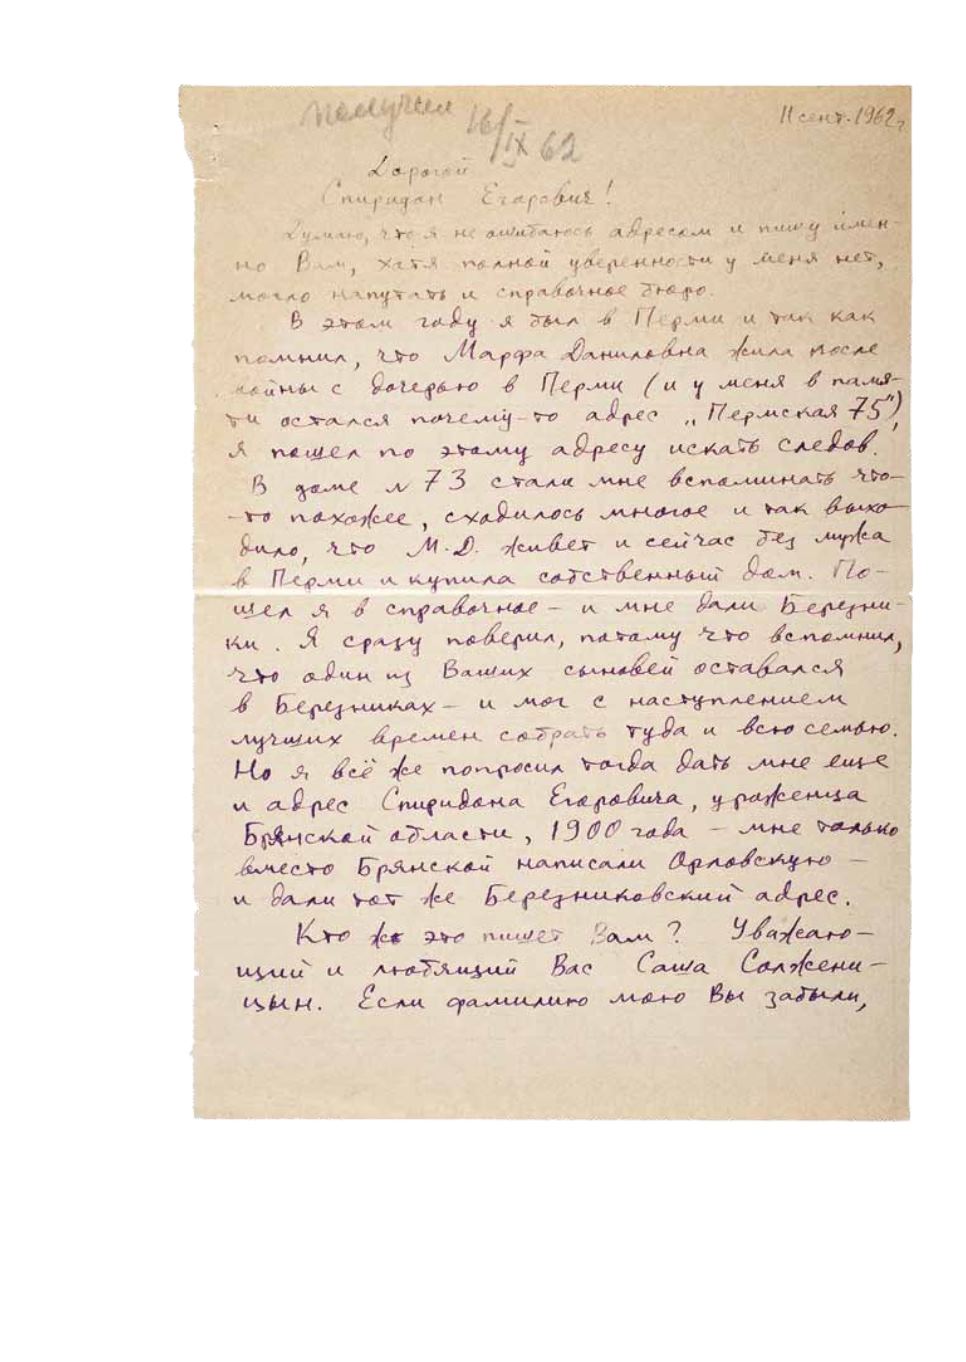 получил 16/IX 62
11 сент. 1962 г.
Дорогой
Спиридон Егорович!
Думаю, что я не ошибаюсь адресом и пишу имен-
но Вам, хотя полной уверенности у меня нет,
могло напутать и справочное бюро.
В этом году я был в Перми и так как
помнил, что Марфа Даниловна жила после
войны с дочерью в Перми (и у меня в памя-
ти остался почему-то адрес „Пермская 75"),
я пошел по этому адресу искать следов.
В доме № 73 стали мне вспоминать что-
-то похожее, сходилось многое и так выхо-
дило, что М.Д. живет и сейчас без мужа
в Перми и купила собственный дом. По-
шел я в справочное – и мне дали Березни-
ки. Я сразу поверил, потому что вспомнил,
что один из Ваших сыновей оставался
в Березниках – и мог с наступлением
лучших времен собрать туда и всю семью.
Но я всё же попросил тогда дать мне еще
и адрес Спиридона Егоровича, уроженца
Брянской области, 1900 года – мне только
вместо Брянской написали Орловскую –
и дали тот же Березниковский адрес.
Кто же это пишет Вам? Уважаю-
щий и любящий Вас Саша Солжени-
цын. Если фамилию мою Вы забыли,